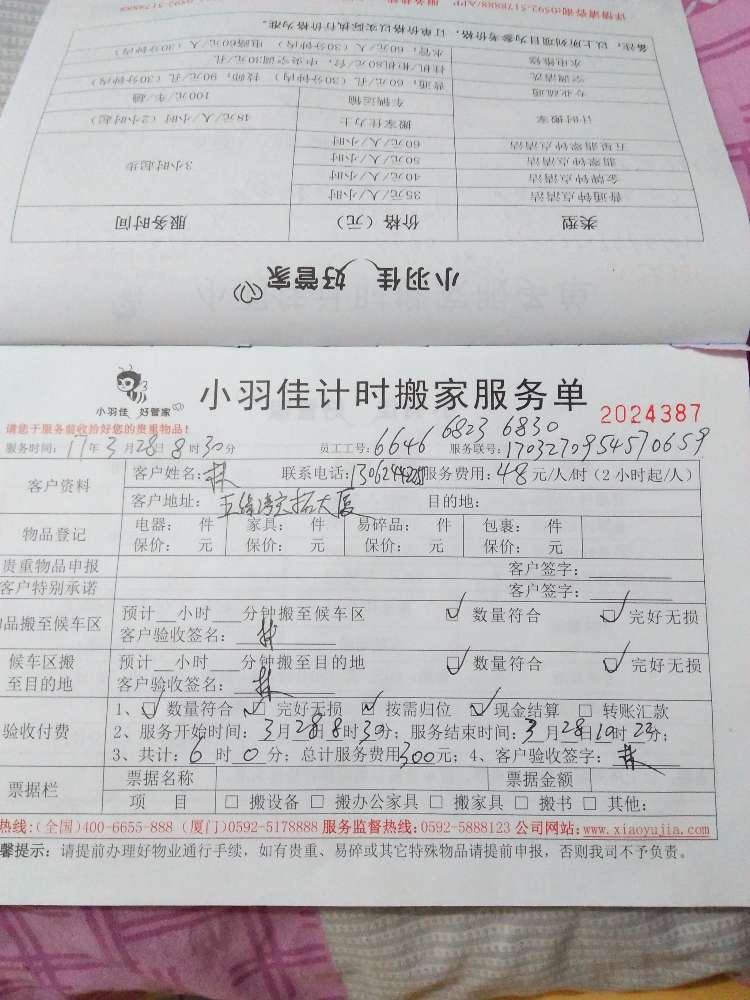 详情请咨询:0592-5178888/APP
备注：以上所列项目为参考价格，订单价格以实际执行价格为准。
水电维修 水管：60元/人（30分钟内） 电路60元/人（30分钟内）
空调清洗 挂机/柜机80元/台，中央空调30元/孔
专业疏通 普通：60元/孔（30分钟内） 技师：90元/孔（30分钟内）
计时搬家 车辆运输 100元/车/趟
搬家佳力士 48元/人/小时（2小时起）
五星翡翠钟点清洁 60元/人/小时
翡翠钟点清洁 50元/人/小时
金牌钟点清洁 40元/人/小时 3小时起步
普通钟点清洁 35元/人/小时
类型 价格（元） 服务时间
小羽佳 好管家
小羽佳 好管家
小羽佳计时搬家服务单 2024387
请您于服务前收拾好您的贵重物品！
6823 6830
服务时间：17年3月28日8时30分 员工工号：6646 服务联号：1703270954570659
客户资料 客户姓名：林 联系电话： 服务费用：48元/人/时（2小时起/人）
客户地址： 目的地：
物品登记 电器： 件 家具： 件 易碎品： 件 包裹： 件
保价： 元 保价： 元 保价： 元 保价： 元
贵重物品申报 客户签字：
客户特别承诺 客户签字：
品搬至候车区 预计__小时___分钟搬至候车区 ☑ 数量符合 ☑ 完好无损
客户验收签名：林
候车区搬至目的地 预计__小时___分钟搬至目的地 ☑ 数量符合 ☑ 完好无损
客户验收签名：林
验收付费 1、☑ 数量符合 ☑ 完好无损 ☑ 按需归位 ☑ 现金结算 □ 转账汇款
2、服务开始时间：3月28日8时30分；服务结束时间：3月28日
3、共计：6时0分；总计服务费用300元；4、客户验收签字：林
票据栏 票据名称 票据金额
项 目 □ 搬设备 □ 搬办公家具 □ 搬家具 □ 搬书 □ 其他：
热线：(全国)400-6655-888 (厦门)0592-5178888 服务监督热线：0592-5888123 公司网站：www.xiaoyujia.com
馨提示：请提前办理好物业通行手续，如有贵重、易碎或其它特殊物品请提前申报，否则我司不予负责。